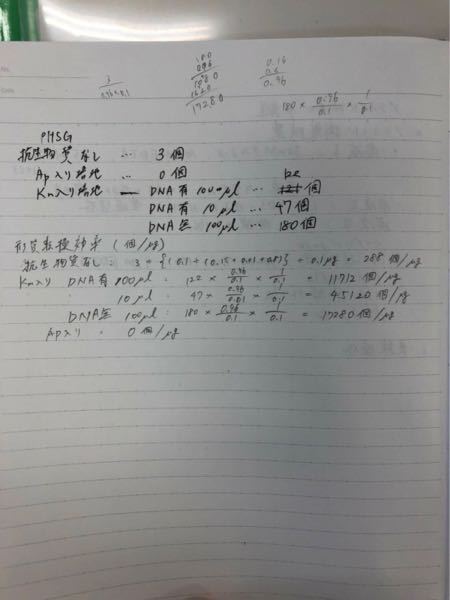 3
0.96×0.1
180
0.96
1080
1620
17280
0.16
0.96
180 × 0.96/0.1 × 1/0.1
PHSG
抗生物質なし … 3個
Ap入り培地 … 0個
Km入り培地 — DNA有 100μl … 個
DNA有 10μl … 47個
DNA無 100μl … 180個
形質転換効率 (個/μg)
抗生物質なし: 3 ÷ {(0.1÷(0.15+0.01+0.8)} ÷ 0.1μg = 288個/μg
Km入り DNA有 100μl : 122 × 0.96/0.1 × 1/0.1 = 11712個/μg
10μl : 47 × 0.96/0.01 × 1/0.1 = 45120個/μg
DNA無 100μl : 180 × 0.96/0.1 × 1/0.1 = 17280個/μg
Ap入り = 0個/μg